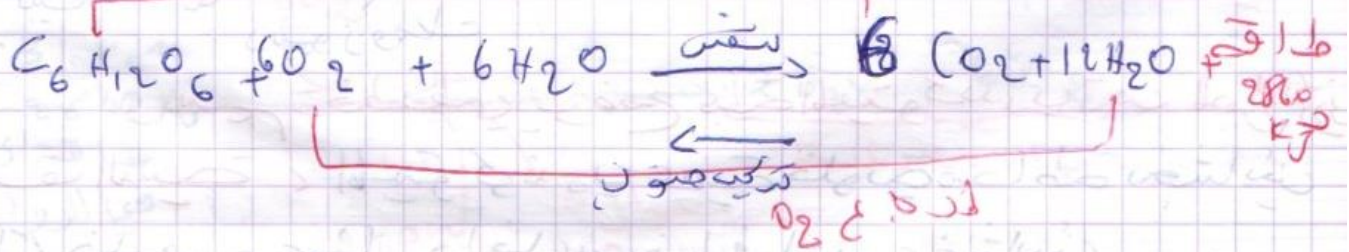 C₆H₁₂O₆ + 6O₂ + 6H₂O تنفس → 6 CO₂ + 12H₂O + طاقة
2860
KJ
← تركيب ضوئي
O₂